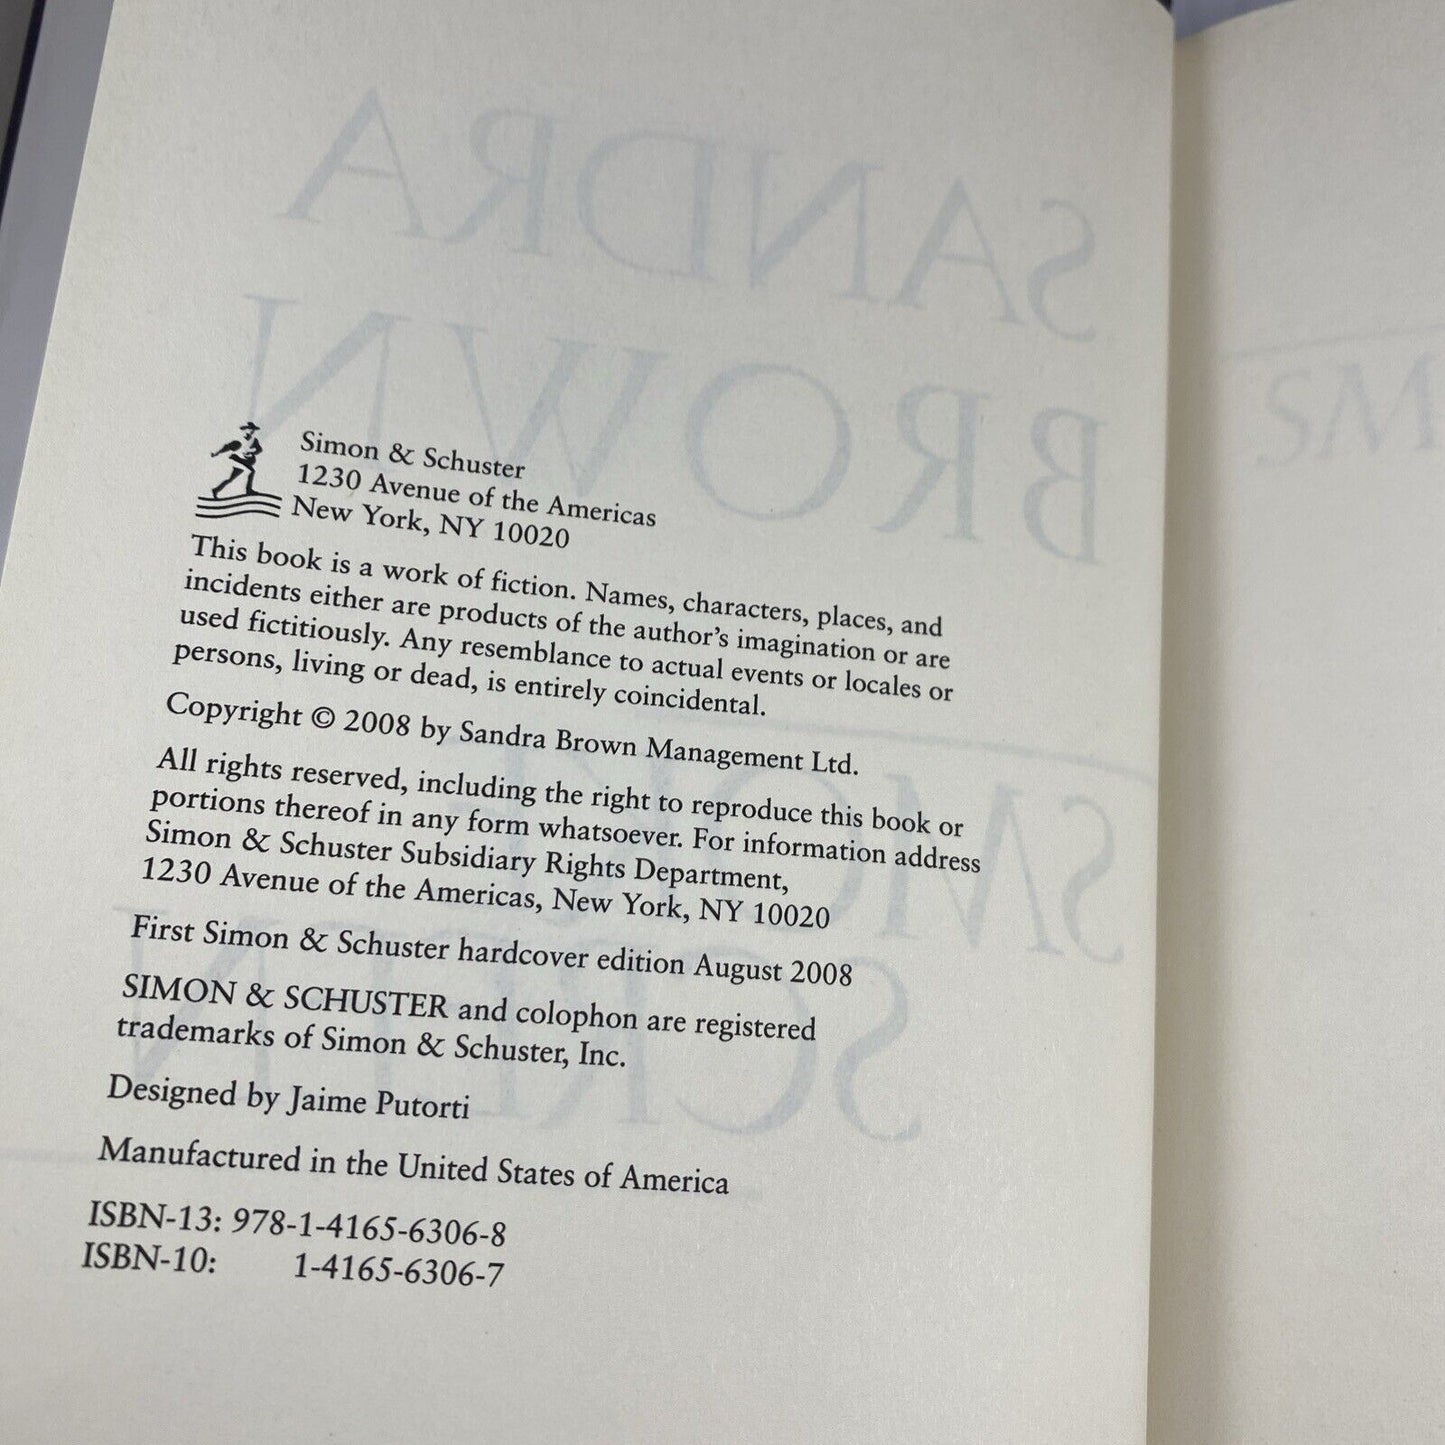 Simon & Schuster
1230 Avenue of the Americas
New York, NY 10020
This book is a work of fiction. Names, characters, places, and
incidents either are products of the author's imagination or are
used fictitiously. Any resemblance to actual events or locales or
persons, living or dead, is entirely coincidental.
Copyright © 2008 by Sandra Brown Management Ltd.
All rights reserved, including the right to reproduce this book or
portions thereof in any form whatsoever. For information address
Simon & Schuster Subsidiary Rights Department,
1230 Avenue of the Americas, New York, NY 10020
First Simon & Schuster hardcover edition August 2008
SIMON & SCHUSTER and colophon are registered
trademarks of Simon & Schuster, Inc.
Designed by Jaime Putorti
Manufactured in the United States of America
ISBN-13: 978-1-4165-6306-8
ISBN-10: 1-4165-6306-7
SANDRA
BROWN